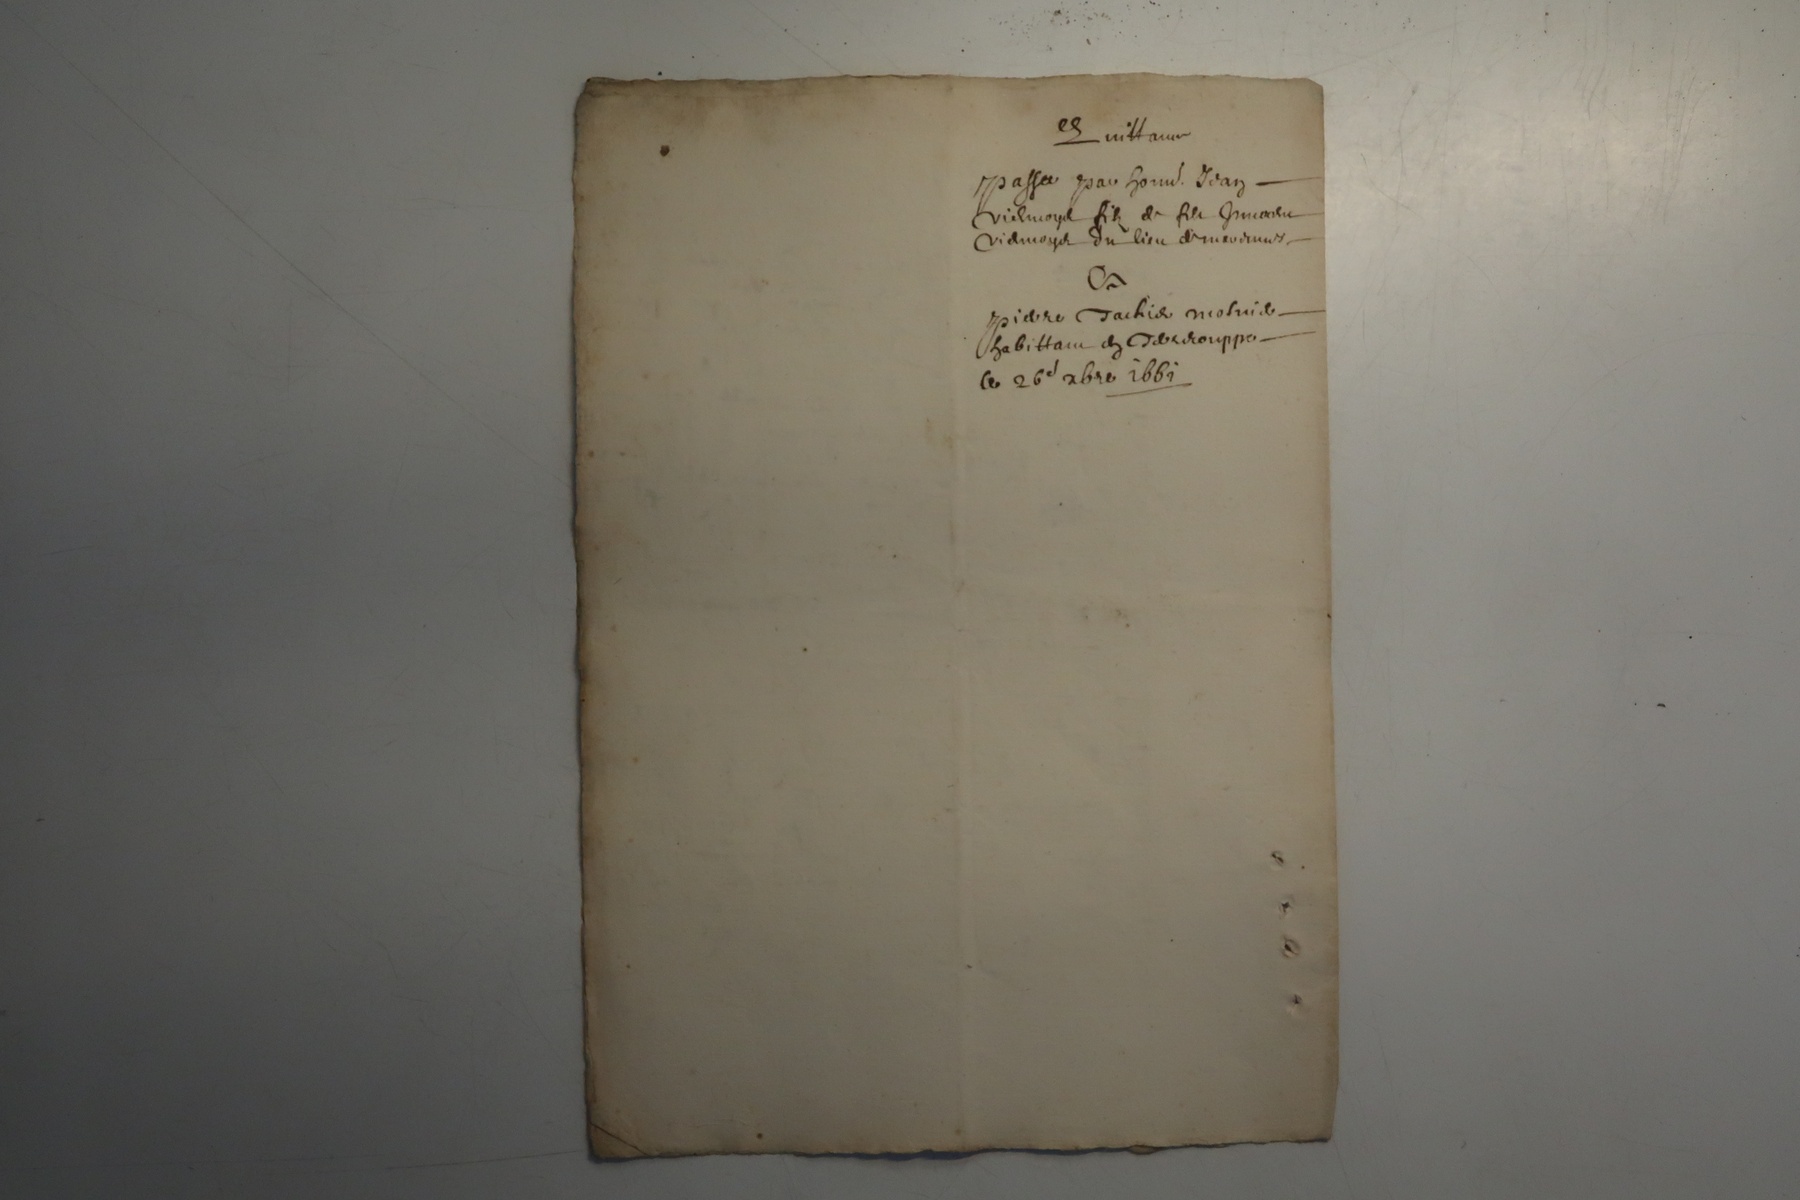 Quittance
Passee par honn. Jean
vielmoye filz de feu
vielmoye du lieu de
A
Pierre Tachie
habittant en
le 26e xbre 1661